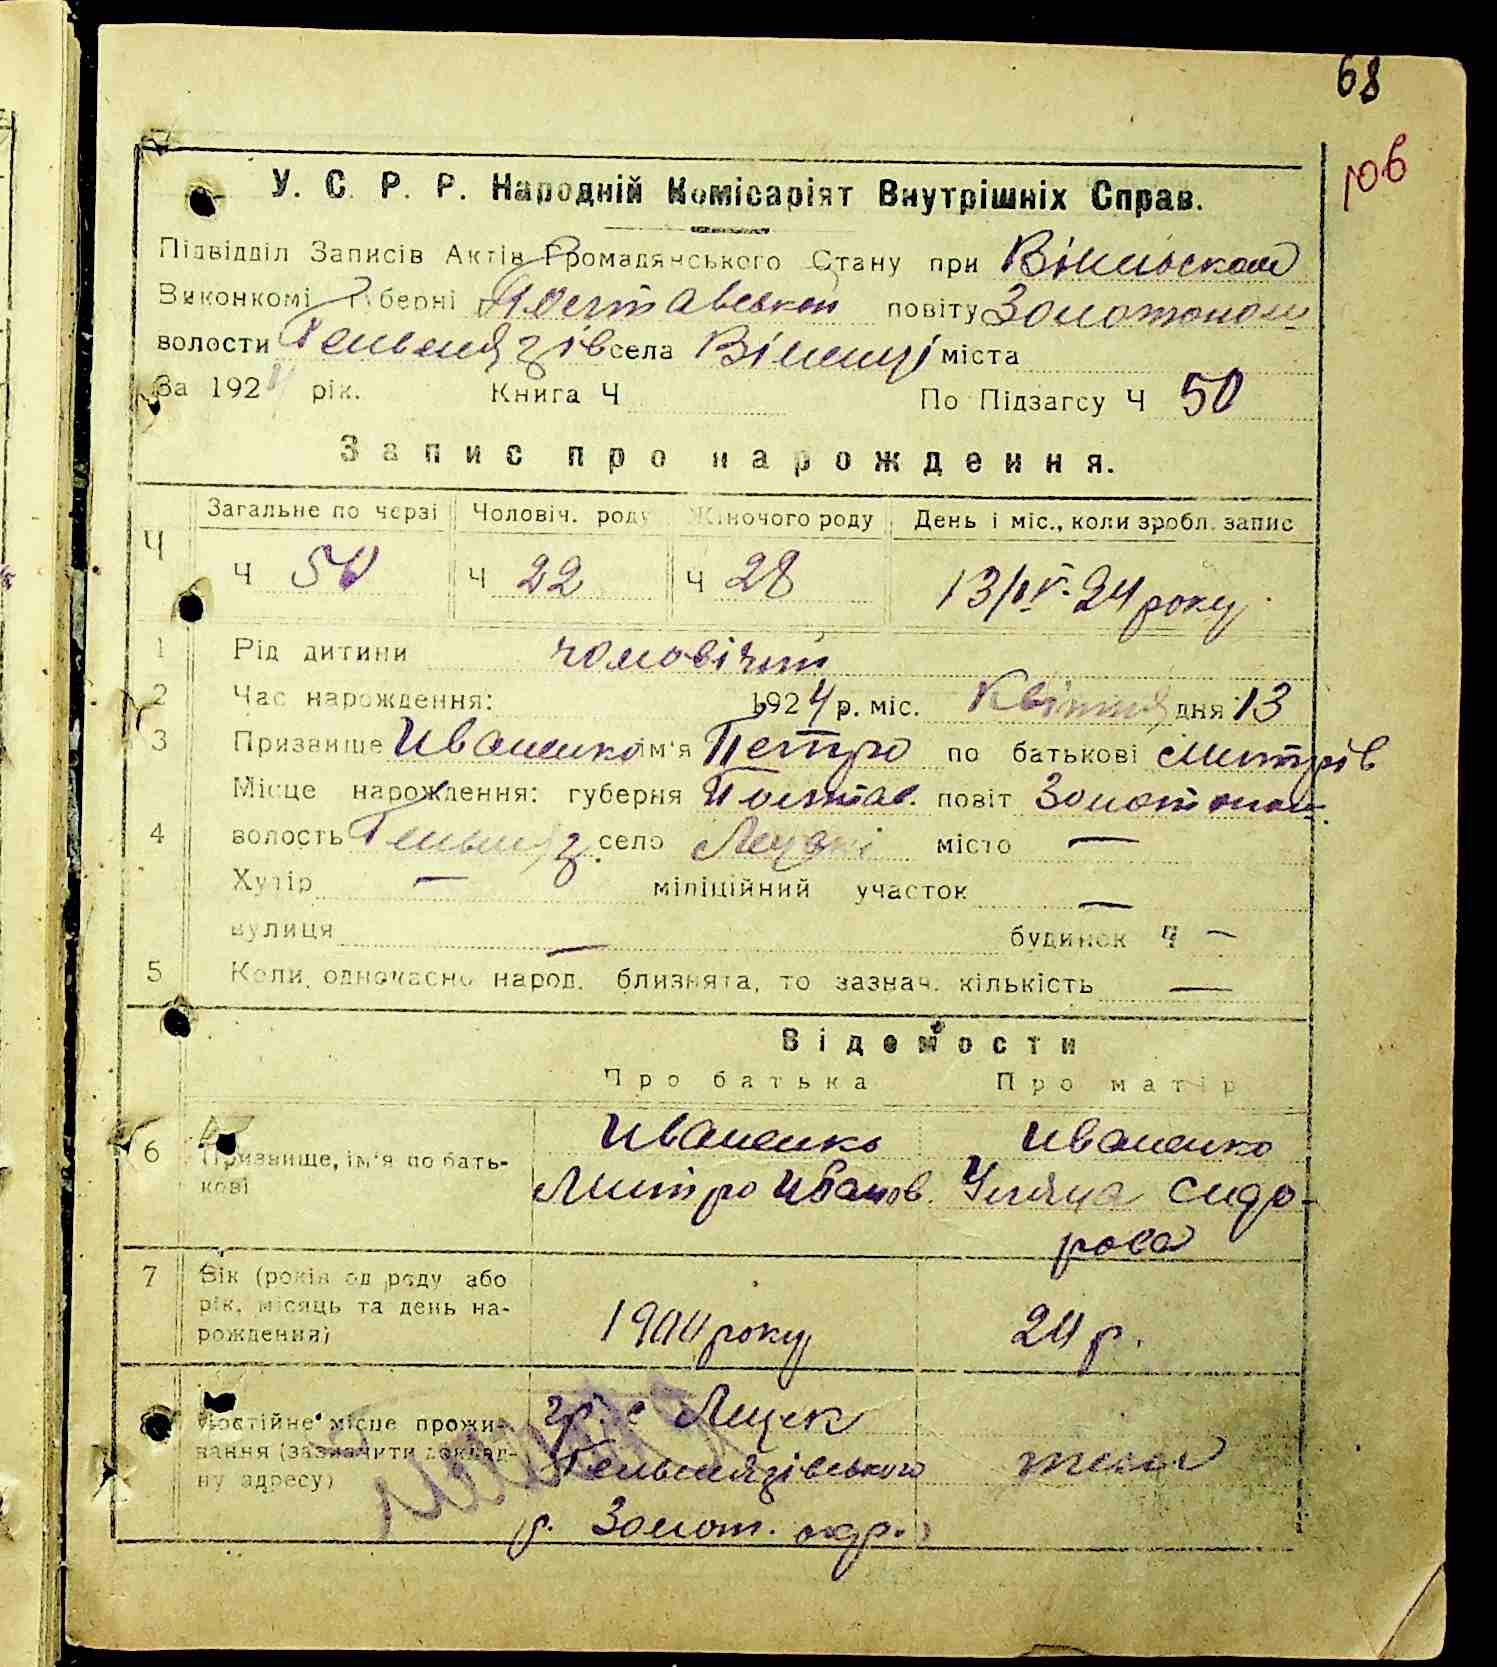 68
106
У. С. Р. Р. Народній Комісаріят Внутрішніх Справ.
Підвідділ Записів Актів Громадянського Стану при
Виконкомі Губерні Полтавської повіту Золотонош
волости Гельмязів села Вінинці міста
За 1924 рік. Книга Ч По Підзагсу Ч 50
Запис про нарождення.
Ч Загальне по черзі Чоловіч. роду Жіночого роду День і міс., коли зробл. запис
Ч 50 Ч 22 Ч 28 13/IV-24 року
1 Рід дитини чоловічий
2 Час нарождення: 1924 р. міс. Квітня дня 13
3 Призвище Иваненко ім'я Петро по батькові Митрів
Місце нарождення: губерня Полтав. повіт Золотонош.
4 волость Гельмяз. село місто —
Хутір — міліційний участок —
вулиця — будинок ч —
5 Коли одночасно народ. близнята, то зазнач. кількість —
Відемости
Про батька Про матір
6 Призвище, ім'я по бать-
кові
Иваненко Иваненко
Митро Иванов. Уляна Сидо-
рова
7 Вік (років од роду або
рік, місяць та день на-
рождення)
1904 року 24 р.
8 Постійне місце прожи-
вання (зазначити доклад-
ну адресу)
гр. с
Гельмязівського теж
р. Золот. окр.